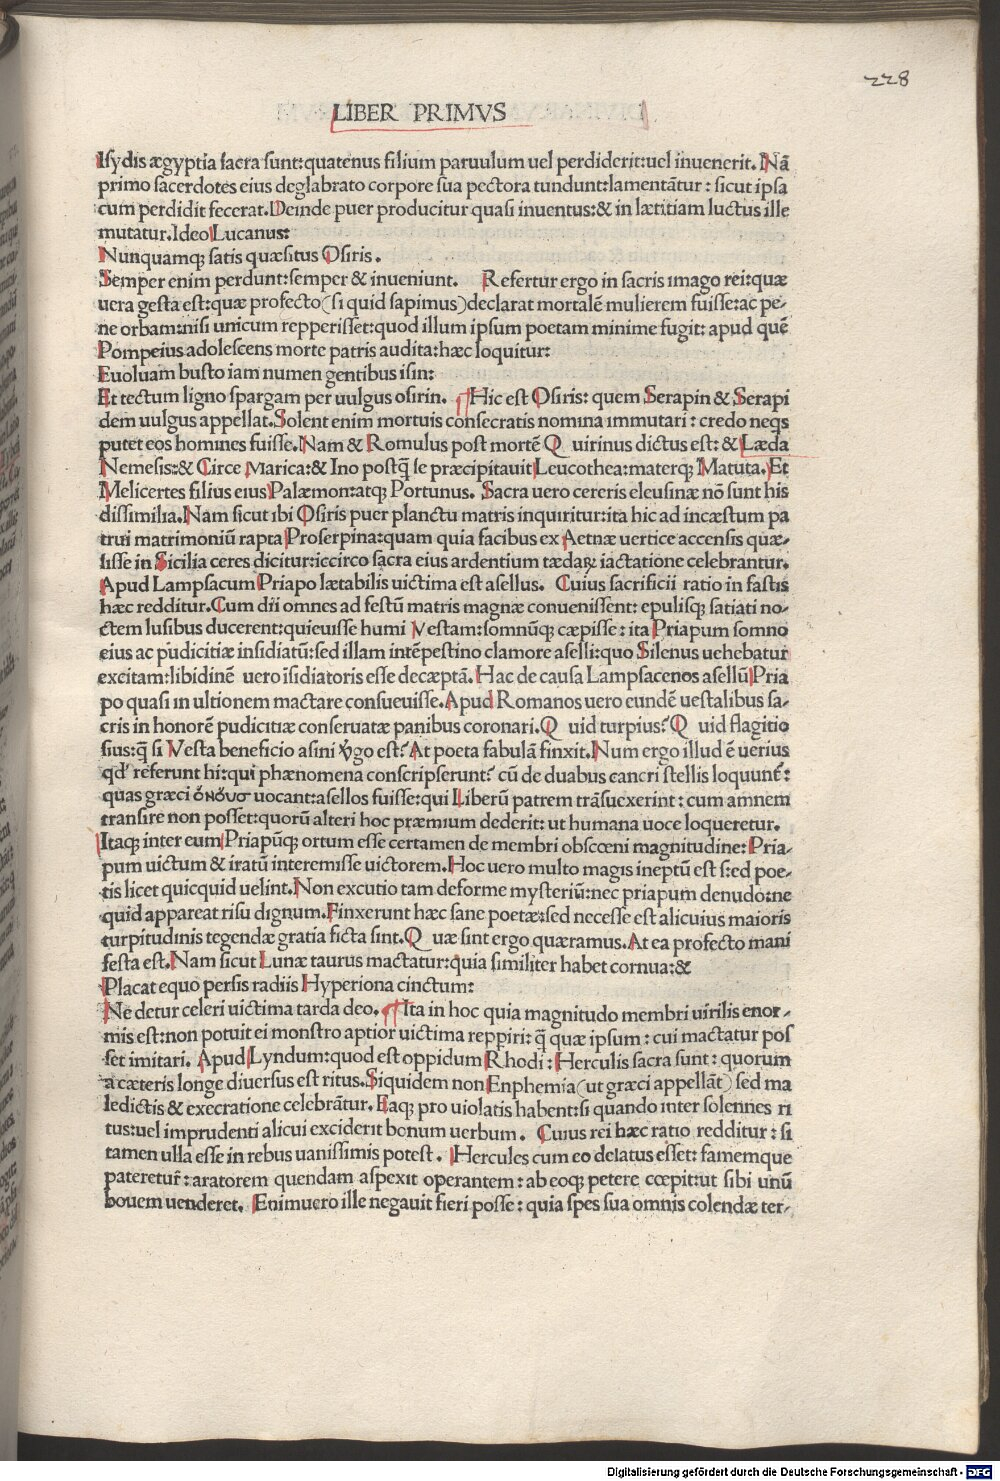 228
LIBER PRIMVS
Isydis ægyptia sacra sunt:quatenus filium paruulum uel perdiderit:uel inuenerit. Nā
primo sacerdotes eius deglabrato corpore sua pectora tundunt:lamentātur : sicut ipsa
cum perdidit fecerat.Deinde puer producitur quasi inuentus:& in lætitiam luctus ille
mutatur.Ideo Lucanus:
Nunquamqꝫ satis quæsitus Osiris .
Semper enim perdunt:semper & inueniunt. Refertur ergo in sacris imago rei:quæ
uera gesta est:quæ profecto(si quid sapimus)declarat mortalē mulierem fuisse:ac pe-
ne orbam:nisi unicum repperisset:quod illum ipsum poetam minime fugit: apud quē
Pompeius adolescens morte patris audita:hæc loquitur:
Euoluam busto iam numen gentibus isin:
Et tectum ligno spargam per uulgus osirin. ¶Hic est Osiris: quem Serapin & Serapi
dem uulgus appellat.Solent enim mortuis consecratis nomina immutari : credo neqs
putet eos homines fuisse.Nam & Romulus post mortē Q uirinus dictus est: & Læda
Nemesis:& Circe Marica:& Ino postq̄ se præcipitauit Leucothea:materqꝫ Matuta. Et
Melicertes filius eius Palæmon:atqꝫ Portunus. Sacra uero cereris eleusinæ nō sunt his
dissimilia.Nam sicut ibi Osiris puer planctu matris inquiritur:ita hic ad incæstum pa
trui matrimoniū rapta Proserpina:quam quia facibus ex Aetnæ uertice accensis quæ-
sisse in Sicilia ceres dicitur:iccirco sacra eius ardentium tædaꝝ iactatione celebrantur.
Apud Lampsacum Priapo lætabilis uictima est asellus. Cuius sacrificii ratio in fastis
hæc redditur.Cum dii omnes ad festū matris magnæ conuenissent: epulisqꝫ satiati no-
ctem lusibus ducerent:quieuisse humi Vestam:somnūqꝫ cæpisse : ita Priapum somno
eius ac pudicitiæ insidiatū:sed illam intēpestino clamore aselli:quo Silenus uehebatur
excitam:libidinē uero īsidiatoris esse decæptā. Hac de causa Lampsacenos asellū Pria
po quasi in ultionem mactare consueuisse.Apud Romanos uero eundē uestalibus sa-
cris in honorē pudicitiæ conseruatæ panibus coronari.Q uid turpius? Q uid flagitio
sius:q̄ si Vesta beneficio asini ỹgo est? At poeta fabulā finxit.Num ergo illud ē uerius
qd' referunt hi:qui phænomena conscripserunt? cū de duabus cancri stellis loquunt̄:
quas græci ὄνὄυσ uocant:asellos fuisse:qui Liberū patrem trāsuexerint : cum amnem
transire non posset:quorū alteri hoc præmium dederit: ut humana uoce loqueretur.
Itaqꝫ inter eum Priapūqꝫ ortum esse certamen de membri obscœni magnitudine: Pria-
pum uictum & iratū interemisse uictorem.Hoc uero multo magis ineptū est s:ed poe-
tis licet quicquid uelint.Non excutio tam deforme mysteriū:nec priapum denudo:ne
quid appareat risu dignum.Finxerunt hæc sane poetæ:sed necesse est alicuius maioris
turpitudinis tegendæ gratia ficta sint.Q uæ sint ergo quæramus.At ea profecto mani
festa est.Nam sicut Lunæ taurus mactatur:quia similiter habet cornua:&
Placat equo persis radiis Hyperiona cinctum:
Ne detur celeri uictima tarda deo.¶Ita in hoc quia magnitudo membri uirilis enor-
mis est:non potuit ei monstro aptior uictima reppiri: q̄ quæ ipsum : cui mactatur pos
set imitari. Apud Lyndum:quod est oppidum Rhodi : Herculis sacra sunt : quorum
a cæteris longe diuersus est ritus.Siquidem non Enphemia(ut græci appellāt) sed ma
ledictis & execratione celebrātur.Eaqꝫ pro uiolatis habent:si quando inter solennes ri
tus:uel imprudenti alicui exciderit bonum uerbum . Cuius rei hæc ratio redditur : si
tamen ulla esse in rebus uanissimis potest . Hercules cum eo delatus esset: famemque
pateretur̄ : aratorem quendam aspexit operantem : ab eoqꝫ petere cœpit:ut sibi unū
bouem uenderet. Enimuero ille negauit fieri posse : quia spes sua omnis colendæ ter-
Digitalisierung gefördert durch die Deutsche Forschungsgemeinschaft - DFG